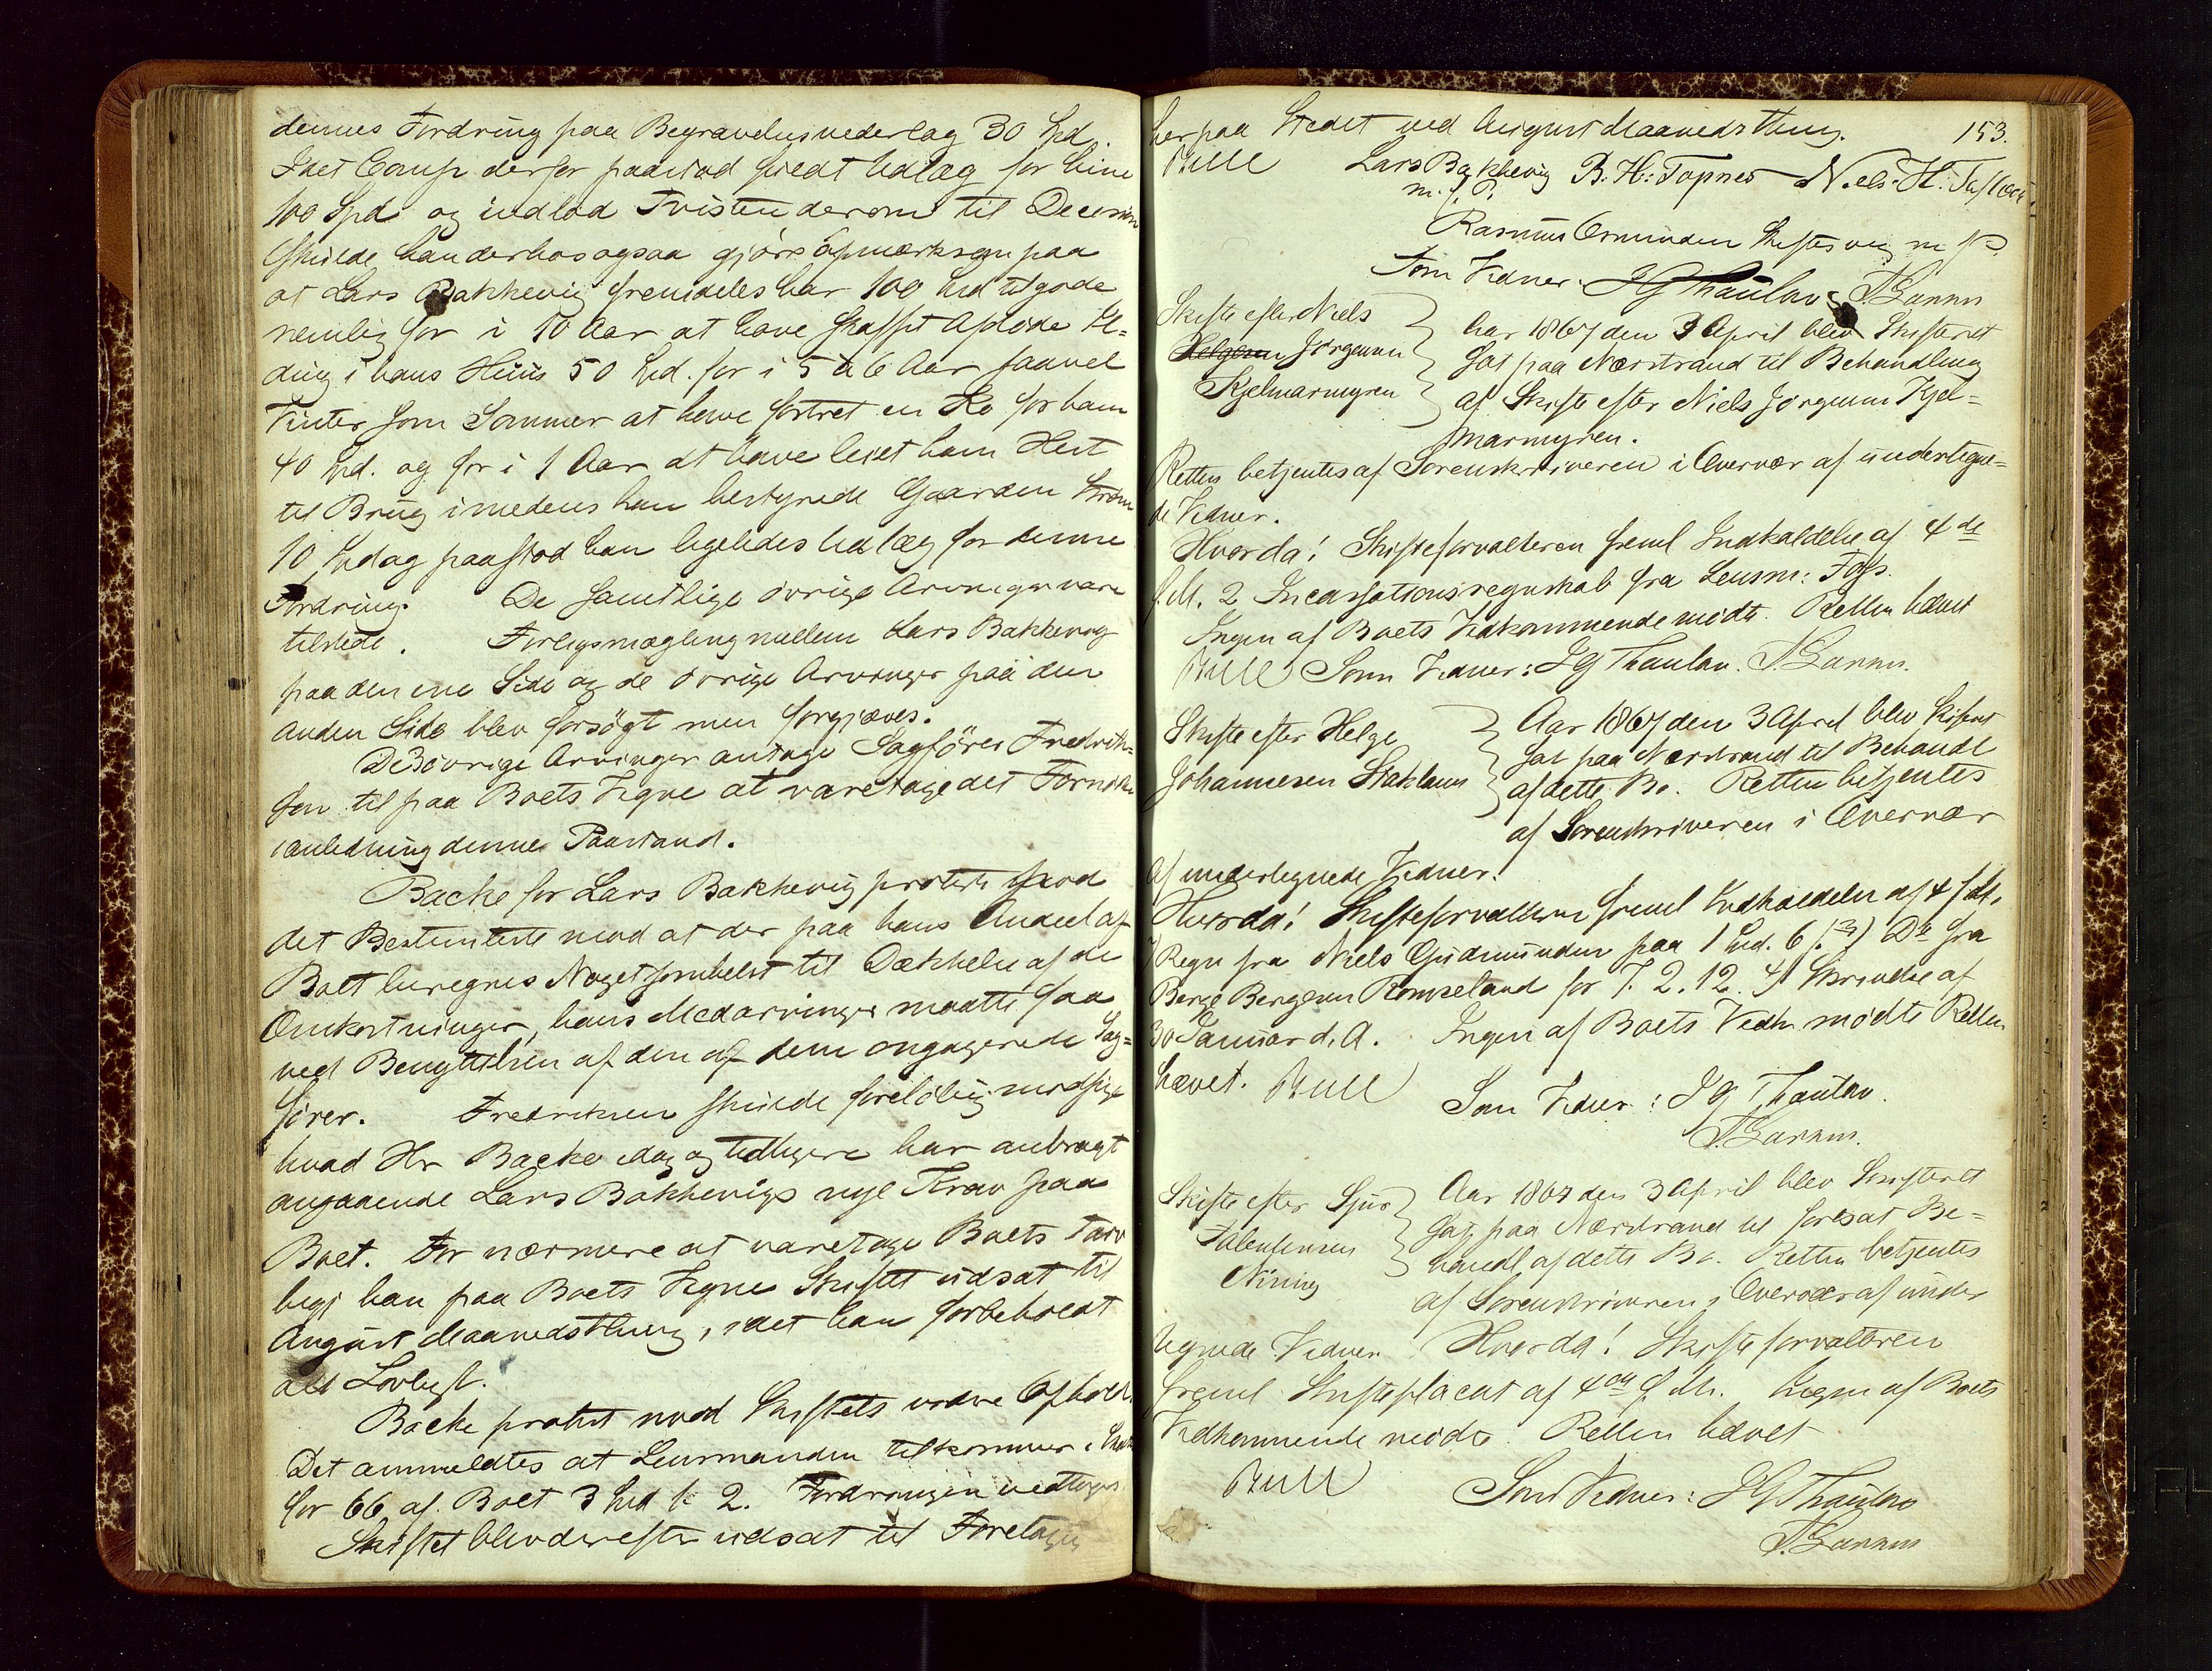 dennes Fordring paa Begravelsesvederlag 30 Spd.
Idet Comp. derfor paastod skeedt Udlæg for hine
100 Spd og indlod Tvisten derom til Decision
skulde han derhos ogsaa gjøre opmærksom paa
at Lars Bakkevig fremdeles har 100 Spd tilgode
nemlig for i 10 Aar at have skaffet Afdøde Il=
ding i hans Huus 50 Spd. for i 5 a 6 Aar saavel
Vinter som Sommer at have foret en Ko for ham
40 Spd. og for i 1 Aar at have leiet ham Hest
til Brug imedens han bestyrede Gaarden
10 Spd og paastod han ligeledes Udlæg for denne
Fordring. De samtlige øvrige Arvinger vare
tilstede. Forligsmægling mellem Lars Bakkevig
paa den ene Side og de øvrige Arvinger paa den
anden Side blev forsøgt men forgjæves.
De øvrige Arvinger antage Sagfører Fredrik=
sen til paa Boets Vegne at varetage det Fornødne
i anledning denne Paastand.
Backe for Lars Bakkevig protest. mod
det Bestemteste mod at der paa hans Andeel af
Boet beregnes Noget somhelst til Dækkelse af de
Omkostninger, hans Medarvinger maatte faa
ved Benyttelsen af den af dem engagerede Sag=
fører. Fredriksen skulde foreløbig modsige
hvad Hr Backe idag og tidligere har anbragt
angaaende Lars Bakkevigs nye Krav paa
Boet. For nærmere at varetage Boets Tarv
begj han paa Boets Vegne Skiftet udsat til
August Maanedsthing, idet han forbeholdt
alt Lovligt.
Backe protest. mod Skiftets videre Ophold.
Det anmeldtes at Lensmanden tilkommer i Skat
for 66 af Boet 3 Spd 1 2. Fordringen vedtoges.
Skiftet blev derefter udsat til Foretagelse
153.
her paa Stedet ved August Maaneds Thing.
Bull Lars Bakkevig B. H: Topnes Niels. H:
m. f. P.
Rasmus m f P
Som Vidner. J G Thaulow
Skifte efter Niels
Helgesen Jørgensen
Kjelmarmyren
Aar 1867 den 3 April blev Skifteret
sat paa Nærstrand til Behandling
af Skifte efter Niels Jørgensen Kjel=
marmyren.
Retten betjentes af Sorenskriveren i Overvær af undertegne=
de Vidner.
Hvorda! Skifteforvalteren freml Indkaldelse af 4de
f. M. 2 Incassationsregnskab fra Lensm:
Ingen af Boets Vedkommende mødte. Retten hævet
Bull Som Vidner: J G Thaulow.
Skifte efter Helge
Johannesen
Aar 1867 den 3 April blev Skifteret
sat paa Nærstrand til Behandl
af dette Bo. Retten betjentes
af Sorenskriveren i Overvær
af undertegnede Vidner.
Hvorda! Skifteforvalteren freml Indkaldelse af 4 f. M.
Regn fra Niels Gudmundsen paa 1 Spd. 6 Do fra
Berge Bergesen for 7. 2. 12. 4) Skrivelse af
30 Januar d. A. Ingen af Boets Vedk mødte Retten
hævet. Bull
Som Vidner: J G Thaulow.
Skifte efter Sjur
Aar 1867 den 3 April blev Skifteret
sat paa Nærstrand til fortsat Be=
handl af dette Bo. Retten betjentes
af Sorenskriveren i Overvær af under
tegnede Vidner Hvorda! Skifteforvalteren
freml Skifteplacat af 4de f. M. Ingen af Boets
Vedkommende mødte Retten hævet
Bull
Som Vidner: J G Thaulow